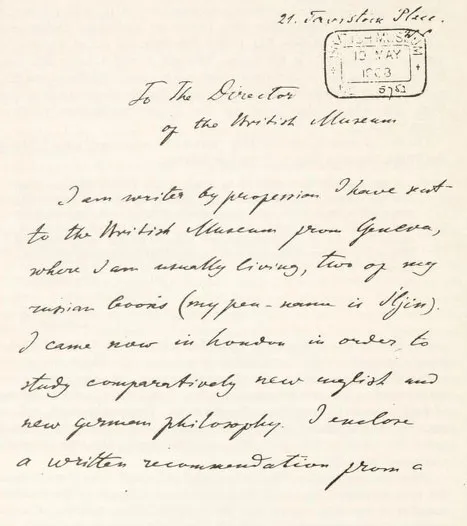 21. Tavistock Place.
W.C.
BRITISH MUSEUM
19 MAY
1908
To The Director
of the British Museum
I am writer by profession I have sent
to the British Museum from Geneva,
where I am usually living, two of my
russian books (my pen-name is Iljin).
I came now in London in order to
study comparatively new english and
new german philosophy. I enclose
a written recommendation from a